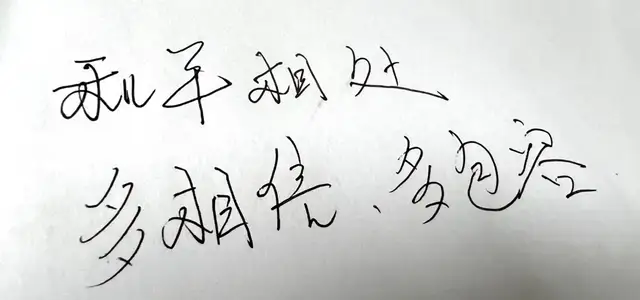 和平相处、
多相信、多包容